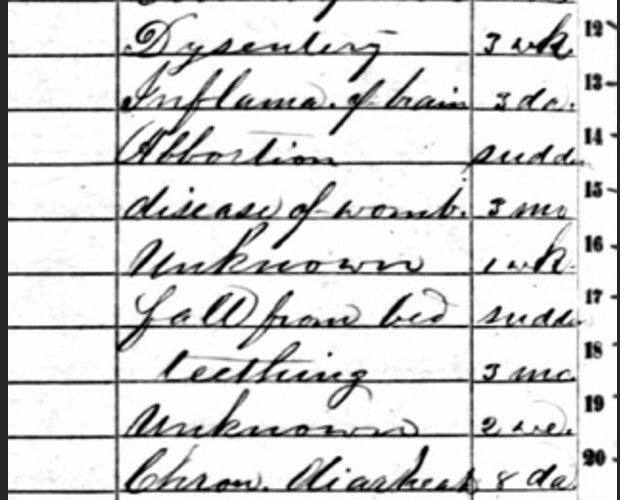 Dysentery 3 wk. 12
Inflama. of brain 3 da. 13
Abbortion sudde 14
disease of womb. 3 mo 15
Unknown 1 wk. 16
fall from bed sudde 17
teething 3 mo. 18
Unknown 2 we. 19
Chron. diarheah 8 da 20